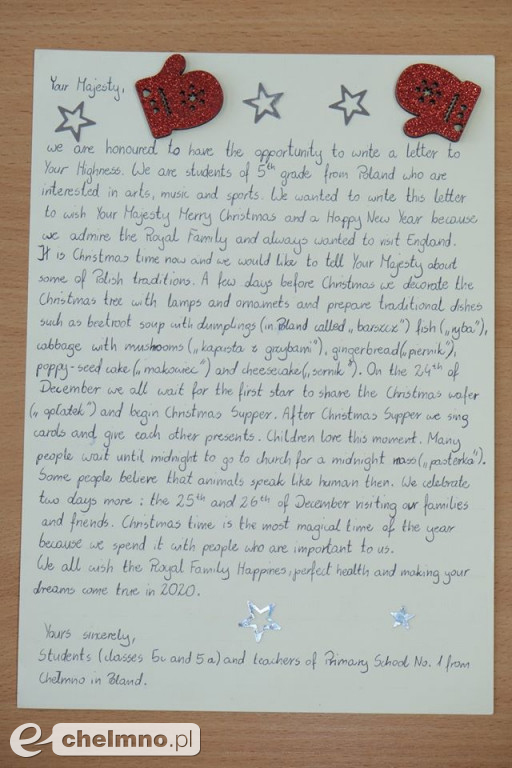 Your Majesty,
we are honoured to have the opportunity to write a letter to
Your Highness. We are students of 5th grade from Poland who are
interested in arts, music and sports. We wanted to write this letter
to wish Your Majesty Merry Christmas and a Happy New Year because
we admire the Royal Family and always wanted to visit England.
It is Christmas time now and we would like to tell Your Majesty about
some of Polish traditions. A few days before Christmas we decorate the
Christmas tree with lamps and ornamets and prepare traditional dishes
such as beetroot soup with dumplings (in Poland called „barszcz") fish („ryba"),
cabbage with mushrooms („kapusta z grzybami"), gingerbread („piernik"),
poppy-seed cake („makowiec") and cheesecake („sernik"). On the 24th of
December we all wait for the first star to share the Christmas wafer
(„opłatek") and begin Christmas Supper. After Christmas Supper we sing
carols and give each other presents. Children love this moment. Many
people wait until midnight to go to church for a midnight mass („pasterka").
Some people believe that animals speak like human then. We celebrate
two days more: the 25th and 26th of December visiting our families
and friends. Christmas time is the most magical time of the year
because we spend it with people who are important to us.
We all wish the Royal Family Happines, perfect health and making your
dreams come true in 2020.
Yours sincerely,
Students (classes 5c and 5a) and teachers of Primary School No. 1 from
Chełmno in Poland.
e-chelmno.pl